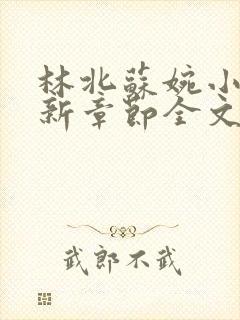 林北蘇婉小
新章節全文
武郎不武